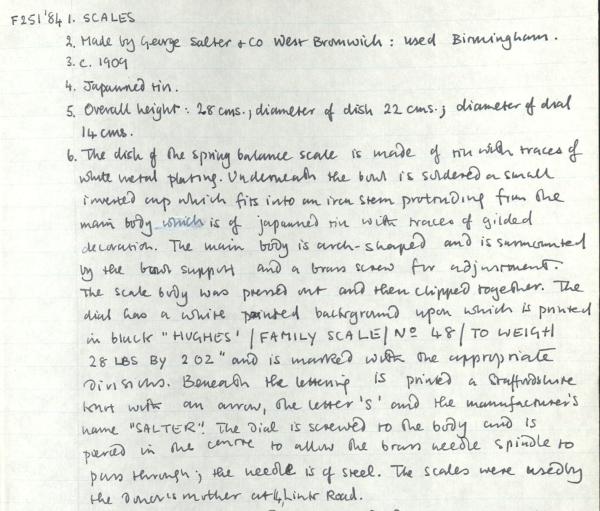 F251'84 1. SCALES
2. Made by George Salter + Co West Bromwich : used Birmingham.
3. c. 1909
4. Japanned tin.
5. Overall height : 28 cms., diameter of dish 22 cms.; diameter of dial
14 cms.
6. The dish of the spring balance scale is made of tin with traces of
white metal plating. Underneath the bowl is soldered a small
inverted cup which fits into an iron stem protruding from the
main body which is of japanned tin with traces of gilded
decoration. The main body is arch-shaped and is surmounted
by the bowl support and a brass screw for adjustment.
The scale body was pressed out and then clipped together. The
dial has a white painted background upon which is printed
in black "HUGHES' / FAMILY SCALE / No 48 / TO WEIGH
28 LBS BY 2 OZ" and is marked with the appropriate
divisions. Beneath the lettering is printed a Staffordshire
knot with an arrow, the letter 'S' and the manufacturer's
name "SALTER". The Dial is screwed to the body and is
pierced in the centre to allow the brass needle spindle to
pass through; the needle is of steel. The scales were used by
the Donor's mother at 4, Link Road.